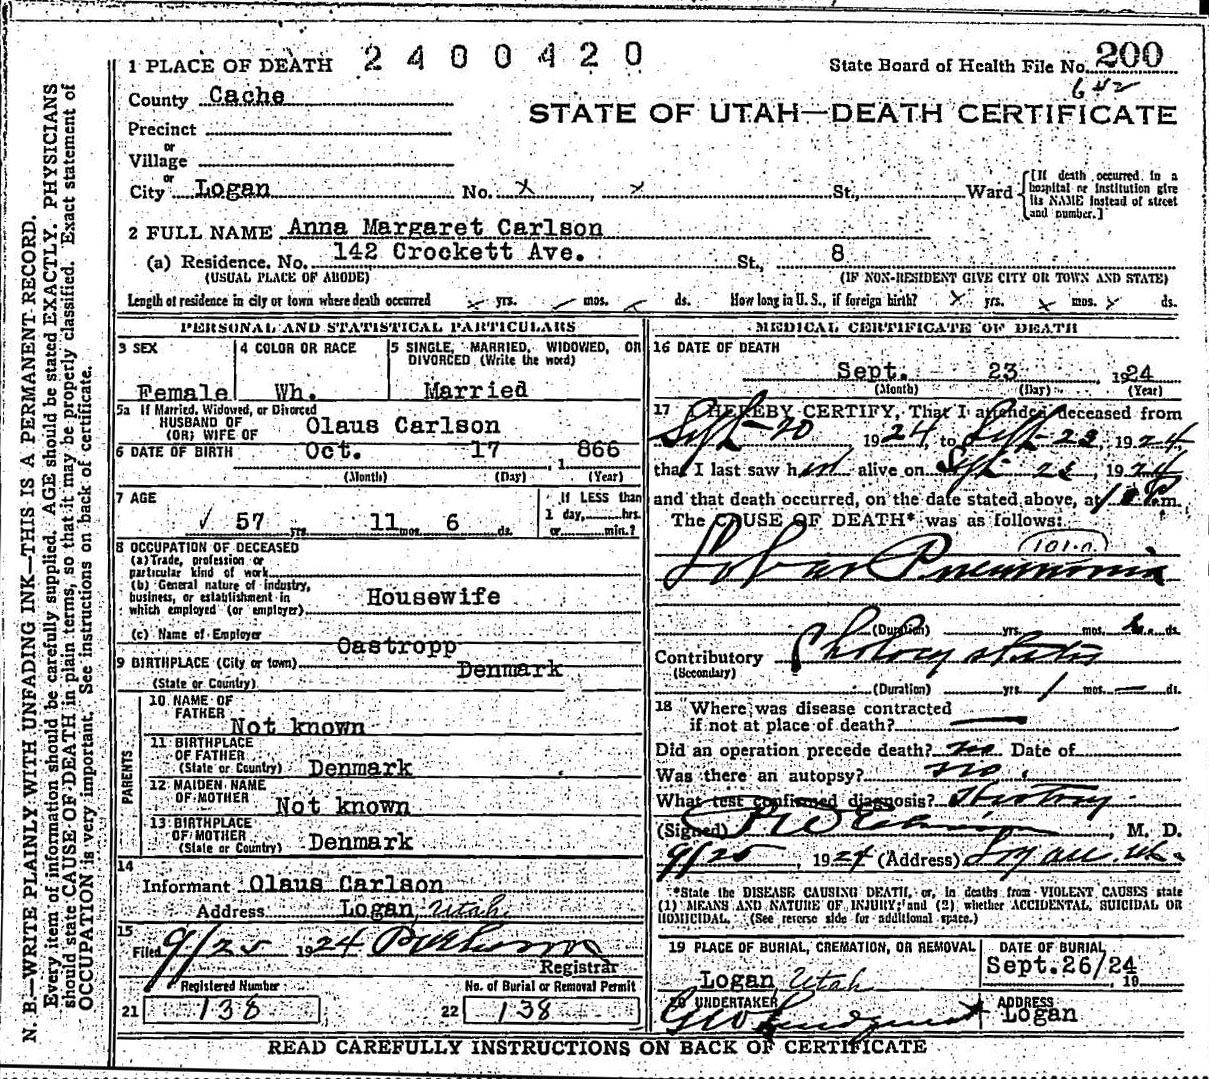 1 PLACE OF DEATH 2400420 State Board of Health File No. 200
642
County Cache
STATE OF UTAH—DEATH CERTIFICATE
Precinct
or
Village
or
City Logan No. x , x St., Ward [If death occurred in a hospital or institution give its NAME instead of street and number.]
2 FULL NAME Anna Margaret Carlson
(a) Residence. No. 142 Crockett Ave. St., 8
(USUAL PLACE OF ABODE) (IF NON-RESIDENT GIVE CITY OR TOWN AND STATE)
Length of residence in city or town where death occurred yrs. mos. ds. How long in U. S., if foreign birth? x yrs. x mos. x ds.
PERSONAL AND STATISTICAL PARTICULARS
3 SEX 4 COLOR OR RACE 5 SINGLE, MARRIED, WIDOWED, OR
DIVORCED (Write the word)
Female Wh. Married
5a If Married, Widowed, or Divorced
HUSBAND OF
(OR) WIFE OF Olaus Carlson
6 DATE OF BIRTH Oct. 17 , 1 866
(Month) (Day) (Year)
7 AGE If LESS than
57 yrs. 11 mos. 6 ds. 1 day, hrs.
or min.?
8 OCCUPATION OF DECEASED
(a) Trade, profession or
particular kind of work
(b) General nature of industry,
business, or establishment in
which employed (or employer) Housewife
(c) Name of Employer
Oastropp
9 BIRTHPLACE (City or town) Denmark
(State or Country)
PARENTS
10 NAME OF
FATHER Not known
11 BIRTHPLACE
OF FATHER
(State or Country) Denmark
12 MAIDEN NAME
OF MOTHER Not known
13 BIRTHPLACE
OF MOTHER
(State or Country) Denmark
14
Informant Olaus Carlson
Address Logan, Utah
15
Filed 9/25 1924
Registrar
Registered Number No. of Burial or Removal Permit
21 138 22 138
MEDICAL CERTIFICATE OF DEATH
16 DATE OF DEATH
Sept. 23 , 1924
(Month) (Day) (Year)
17 I HEREBY CERTIFY, That I attended deceased from
Sept-20 1924, to Sept- , 1924
that I last saw h alive on Sept- , 1924
and that death occurred, on the date stated above, at m.
The CAUSE OF DEATH* was as follows:
101.a
Lobar Pneumonia
(Duration) yrs. mos. ds.
Contributory
(Secondary)
(Duration) yrs. 1 mos. — ds.
18 Where was disease contracted
if not at place of death? —
Did an operation precede death? no Date of
Was there an autopsy? no.
What test confirmed diagnosis? History
(Signed) , M. D.
9/25, 1924 (Address) Logan Ut.
*State the DISEASE CAUSING DEATH, or, in deaths from VIOLENT CAUSES state
(1) MEANS AND NATURE OF INJURY; and (2) whether ACCIDENTAL, SUICIDAL OR
HOMICIDAL. (See reverse side for additional space.)
19 PLACE OF BURIAL, CREMATION, OR REMOVAL DATE OF BURIAL
Logan, Utah Sept. 26/24 19
20 UNDERTAKER ADDRESS
Logan
READ CAREFULLY INSTRUCTIONS ON BACK OF CERTIFICATE
N. B.—WRITE PLAINLY WITH UNFADING INK—THIS IS A PERMANENT RECORD.
Every item of information should be carefully supplied. AGE should be stated EXACTLY. PHYSICIANS
should state CAUSE OF DEATH in plain terms, so that it may be properly classified. Exact statement of
OCCUPATION is very important. See instructions on back of certificate.